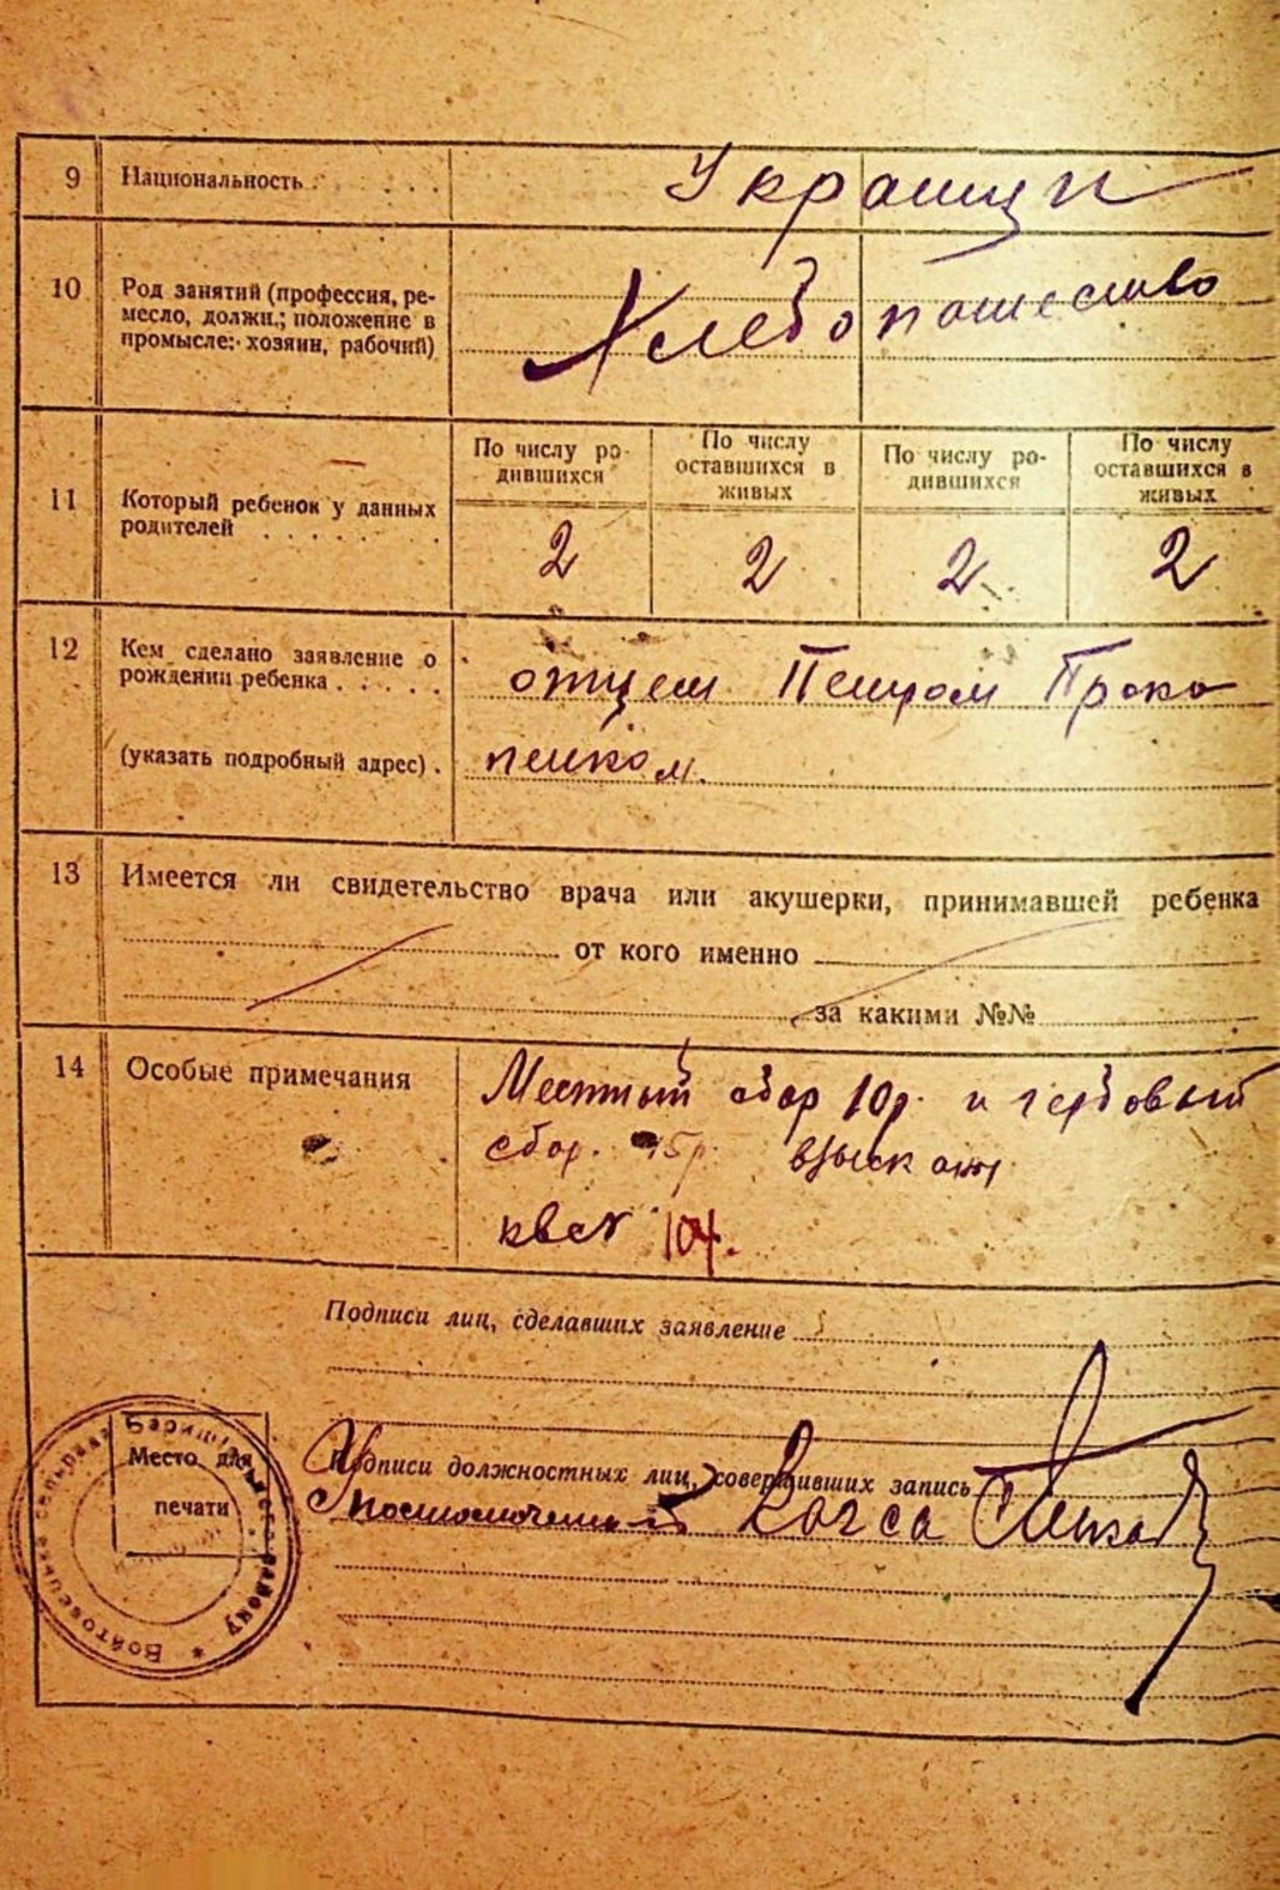 9 Национальность Украинци
10 Род занятий (профессия, ре-
месло, должн.; положение в
промысле: хозяин, рабочий)
Хлебопашество
11 Который ребенок у данных
родителей
По числу ро-
дившихся
По числу
оставшихся в
живых
По числу ро-
дившихся
По числу
оставшихся в
живых
2 2 2 2
12 Кем сделано заявление о
рождении ребенка
(указать подробный адрес)
отцем Петром Проко
пенком.
13 Имеется ли свидетельство врача или акушерки, принимавшей ребенка
от кого именно
за какими №№
14 Особые примечания
Местный сбор 10р. и гербовый
сбор. 15р. взыскан
квс № 104.
Подписи лиц, сделавших заявление
Подписи должностных лиц, совершивших запись
Место для
печати